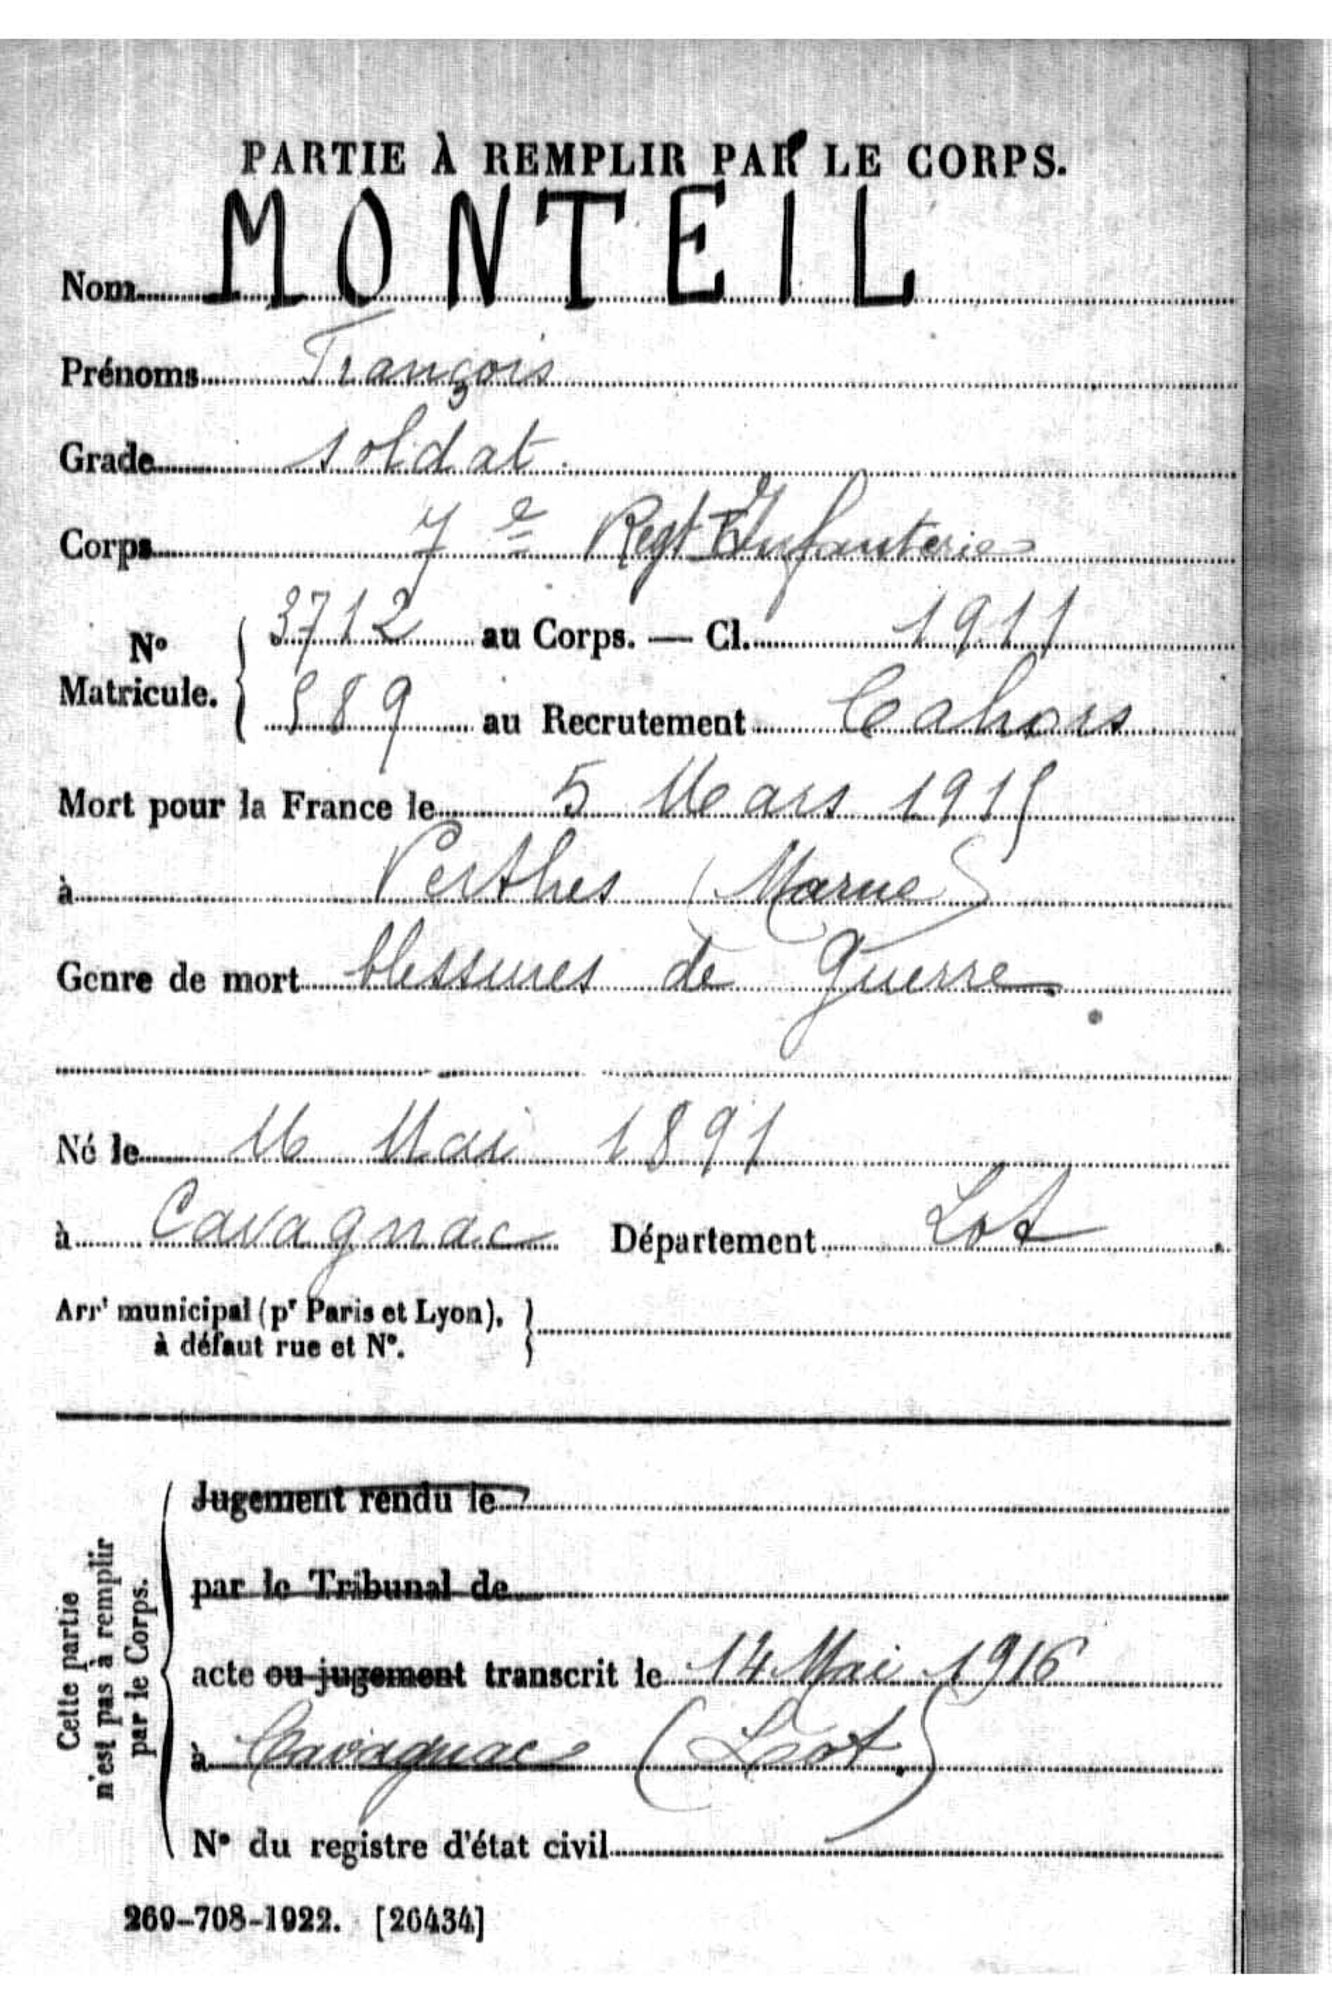 PARTIE À REMPLIR PAR LE CORPS.
Nom MONTEIL
Prénoms François
Grade soldat.
Corps 7e Regt d'Infanterie
No Matricule. { 3712 au Corps. — Cl. 1911
589 au Recrutement Cahors
Mort pour la France le 5 Mars 1915
à Perthes (Marne)
Genre de mort blessures de Guerre.
Né le 16 Mai 1891
à Cavagnac Département Lot
Arrt municipal (pr Paris et Lyon), }
à défaut rue et No.
Cette partie n'est pas à remplir par le Corps.
Jugement rendu le
par le Tribunal de
acte ou jugement transcrit le 14 Mai 1916
à Cavagnac (Lot.)
No du registre d'état civil
269-708-1922. [26434]